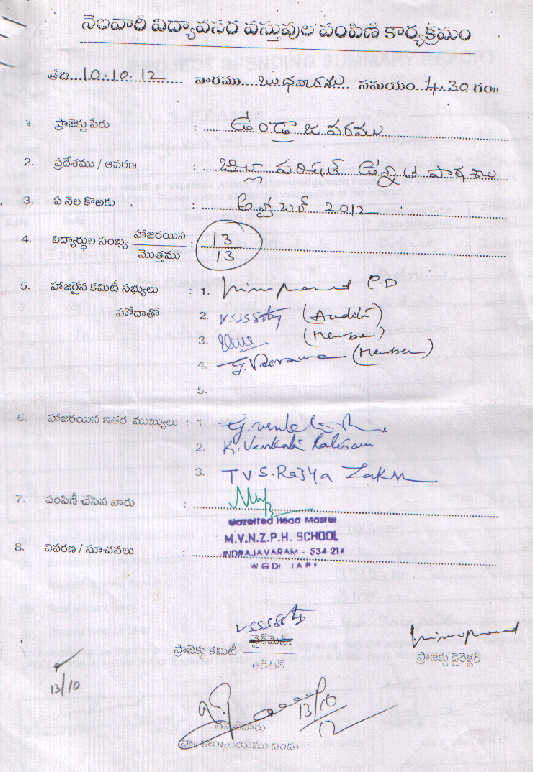 నెలవారి విద్యావసర వస్తువుల పంపిణి కార్యక్రమం
తేది 10.10.12 వారము బుధవారము సమయం 4.30 గం॥
1. ప్రాజెక్టు పేరు : ఉండ్రాజవరము
2. ప్రదేశము / ఆవరణ : జిల్లా పరిషత్ ఉన్నత పాఠశాల
3. ఏ నెల కొఱకు : అక్టోబర్ 2012
4. విద్యార్థుల సంఖ్య హాజరయిన : 13
మొత్తము 13
5. హాజరైన కమిటీ సభ్యులు : 1. PD
సహోదాతో 2. (Auditor)
3. (Member)
4. (Member)
5.
6. హాజరయిన ఇతర ముఖ్యులు : 1.
2. K. Venkata
3. T V S. Rajya
7. పంపిణీ చేసిన వారు :
Gazetted Head Master
M.V.N.Z.P.H. SCHOOL
8. వివరణ / సూచనలు : INDRAJAVARAM - 534 21
ప్రాజెక్టు కమిటీ చైర్మెన్
ఆడిటర్
ప్రాజెక్టు డైరెక్టర్
13/10
13/10
12